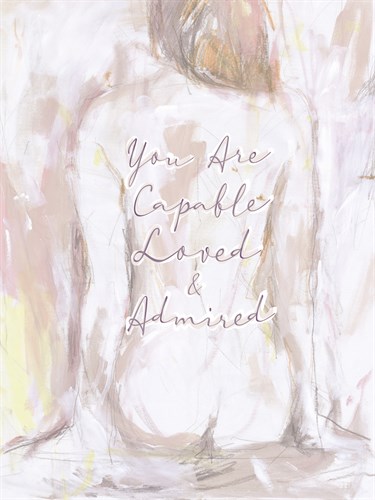 You Are
Capable
Loved
&
Admired